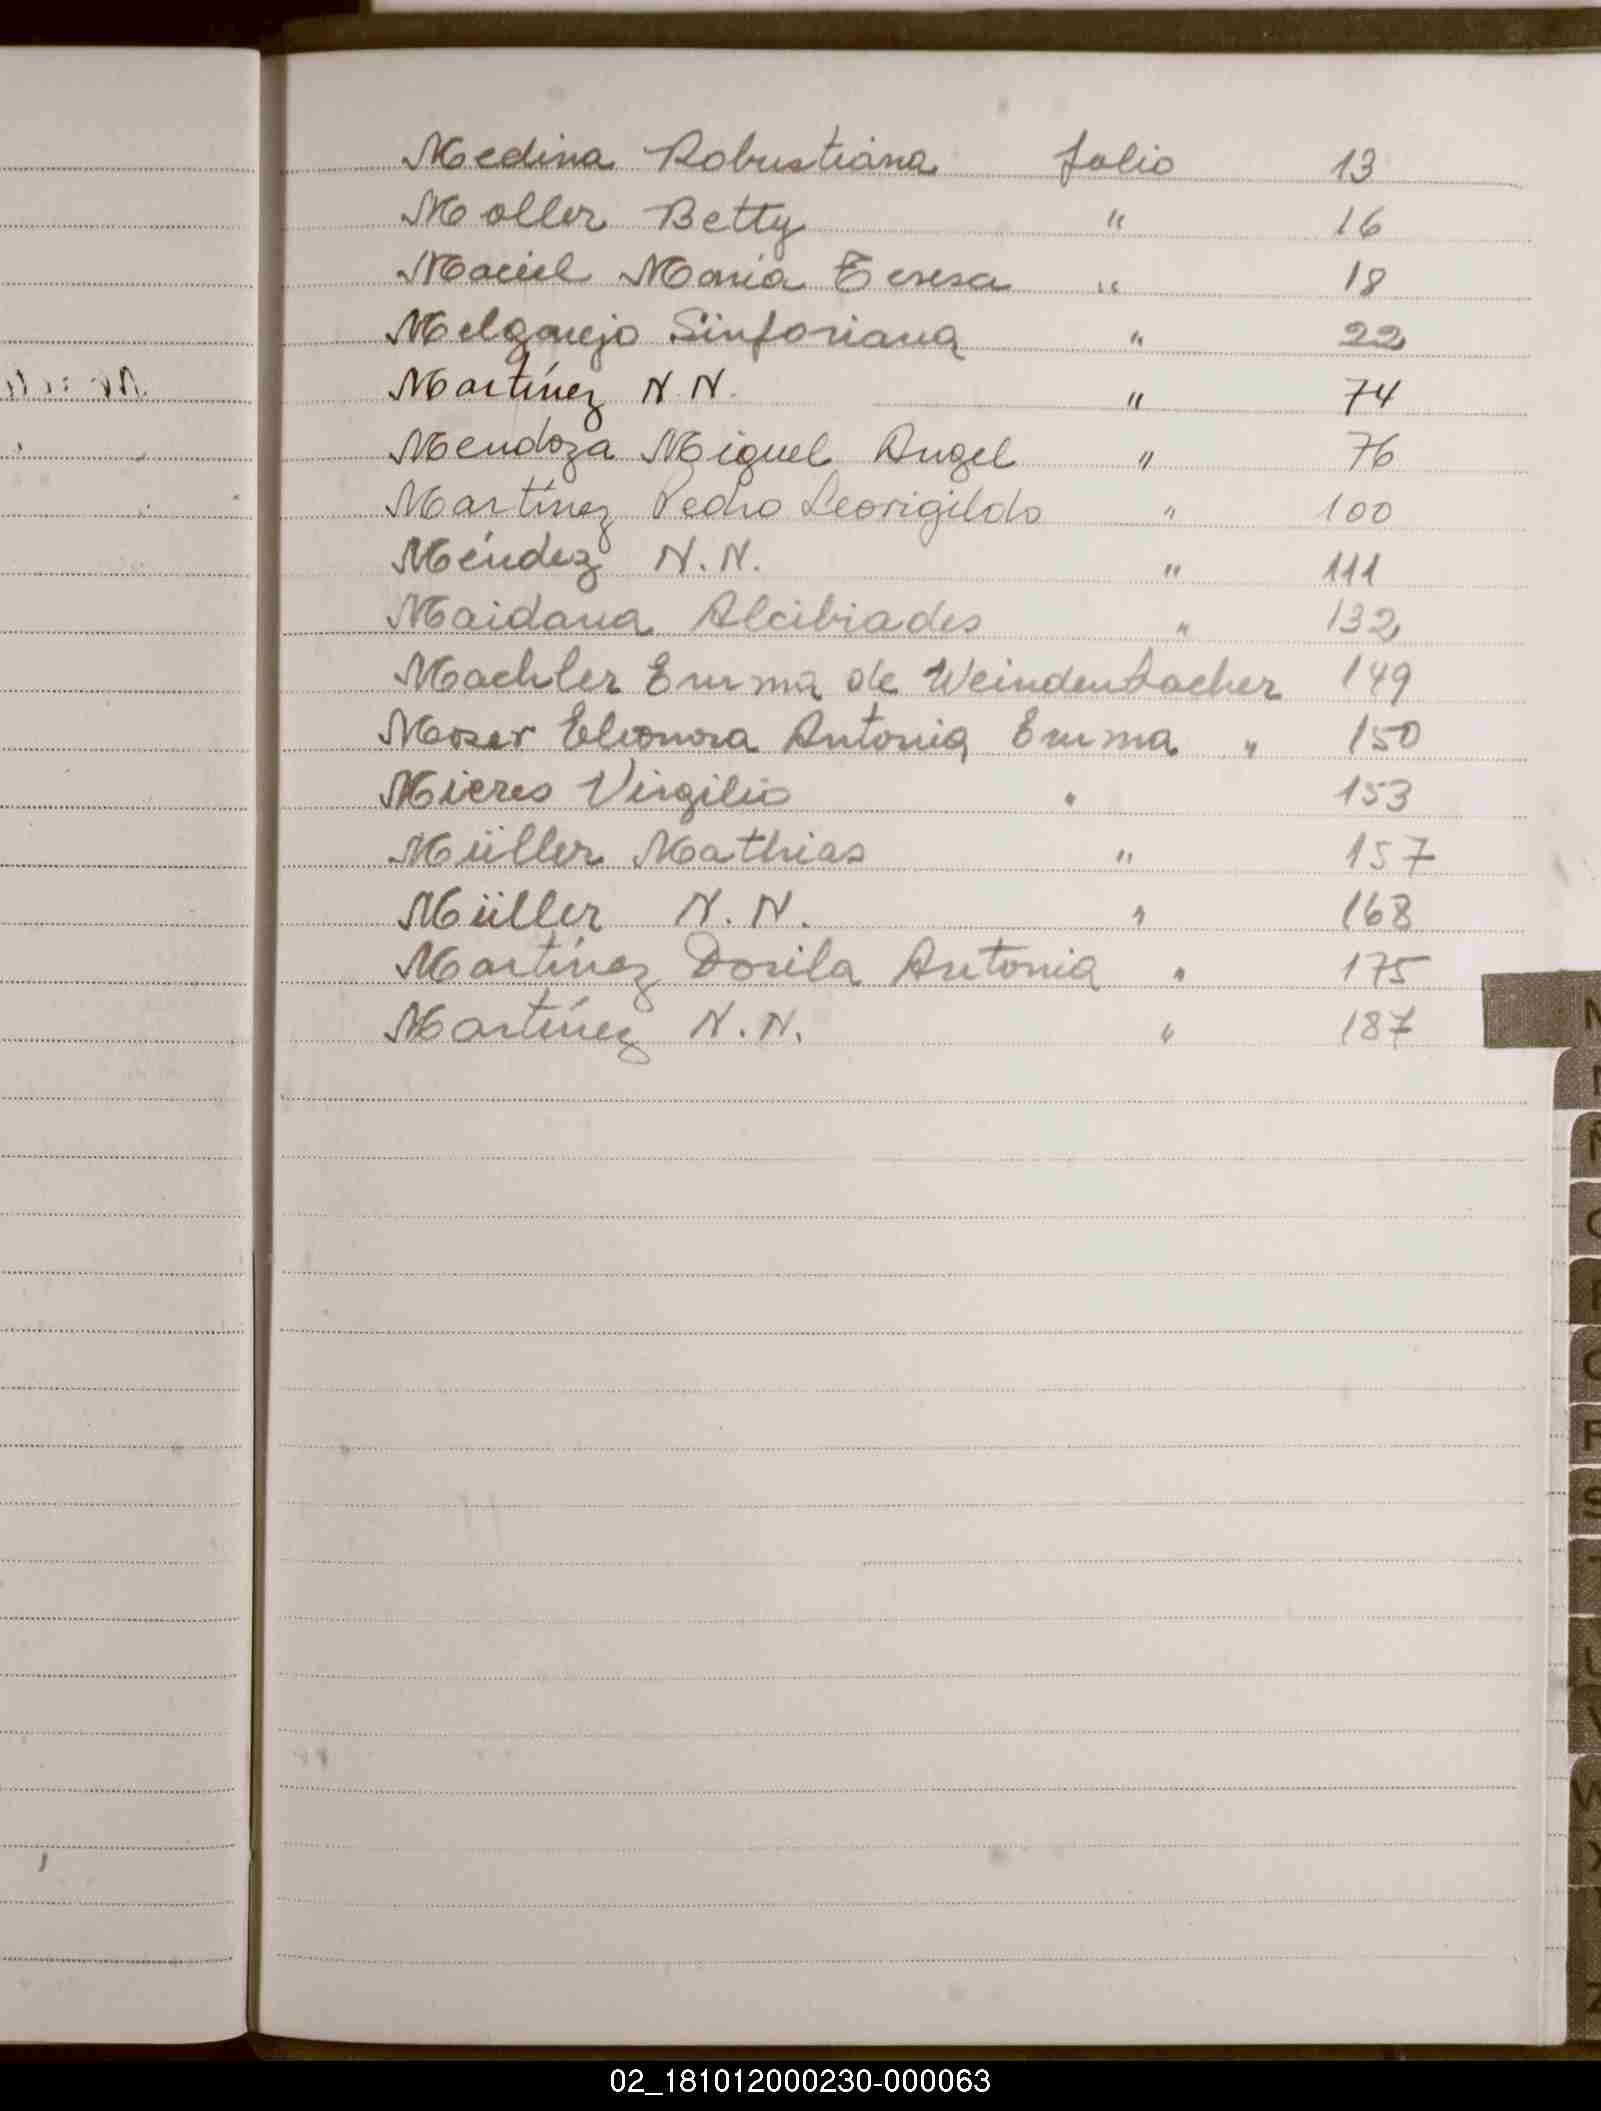 Medina Robustiana folio 13
Moller Betty " 16
Maciel Maria Teresa " 18
Melgarejo Sinforiana " 22
Martínez N.N. " 74
Mendoza Miguel Angel " 76
Martínez Pedro Leovigildo " 100
Méndez N.N. " 111
Maidana Alcibiades " 132
Maehler Emma de Weindenbacher 149
Moser Eleonora Antonia Emma " 150
Mieres Virgilio " 153
Müller Mathias " 157
Müller N.N. " 168
Martínez Dorila Antonia " 175
Martínez N.N. " 187
S
W
Z
02_181012000230-000063